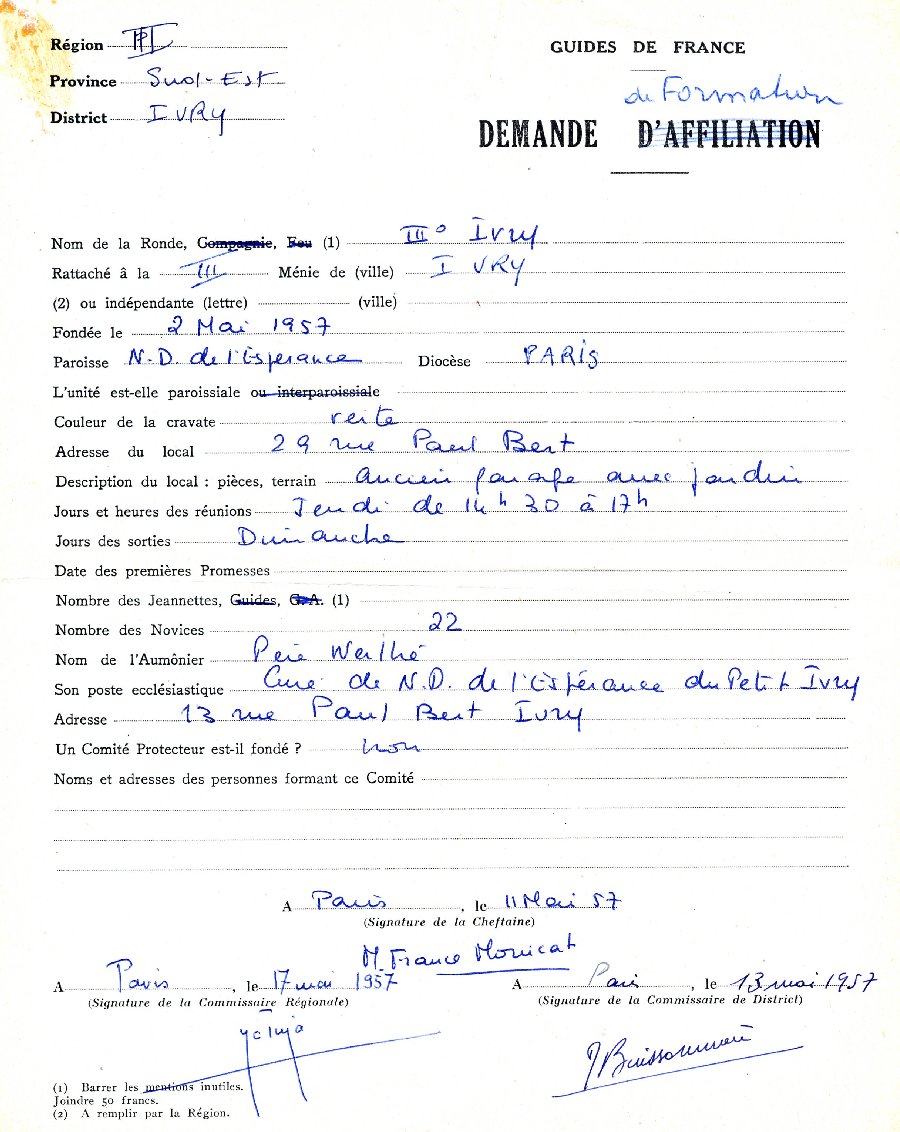 Région III
Province Sud-Est
District IVRY
GUIDES DE FRANCE
de Formation
DEMANDE D'AFFILIATION
Nom de la Ronde, Compagnie, Feu (1) IIIº Ivry
Rattaché â la III Ménie de (ville) IVRY
(2) ou indépendante (lettre) (ville)
Fondée le 2 Mai 1957
Paroisse N.D. de l'Espérance Diocèse PARIS
L'unité est-elle paroissiale ou interparoissiale
Couleur de la cravate
Adresse du local 29 rue Paul Bert
Description du local : pièces, terrain ancien garage avec jardin
Jours et heures des réunions Jeudi de 14h 30 à 17h
Jours des sorties Dimanche
Date des premières Promesses
Nombre des Jeannettes, Guides, G.A. (1)
Nombre des Novices 22
Nom de l'Aumônier Père
Son poste ecclésiastique Curé de N.D. de l'Espérance du Petit Ivry
Adresse 13 rue Paul Bert Ivry
Un Comité Protecteur est-il fondé ? non
Noms et adresses des personnes formant ce Comité
A Paris, le 11 Mai 57
(Signature de la Cheftaine)
M. France Monicat
A Paris, le 17 mai 1957
(Signature de la Commissaire Régionale)
A Paris, le 13 mai 1957
(Signature de la Commissaire de District)
(1) Barrer les mentions inutiles.
Joindre 50 francs.
(2) A remplir par la Région.